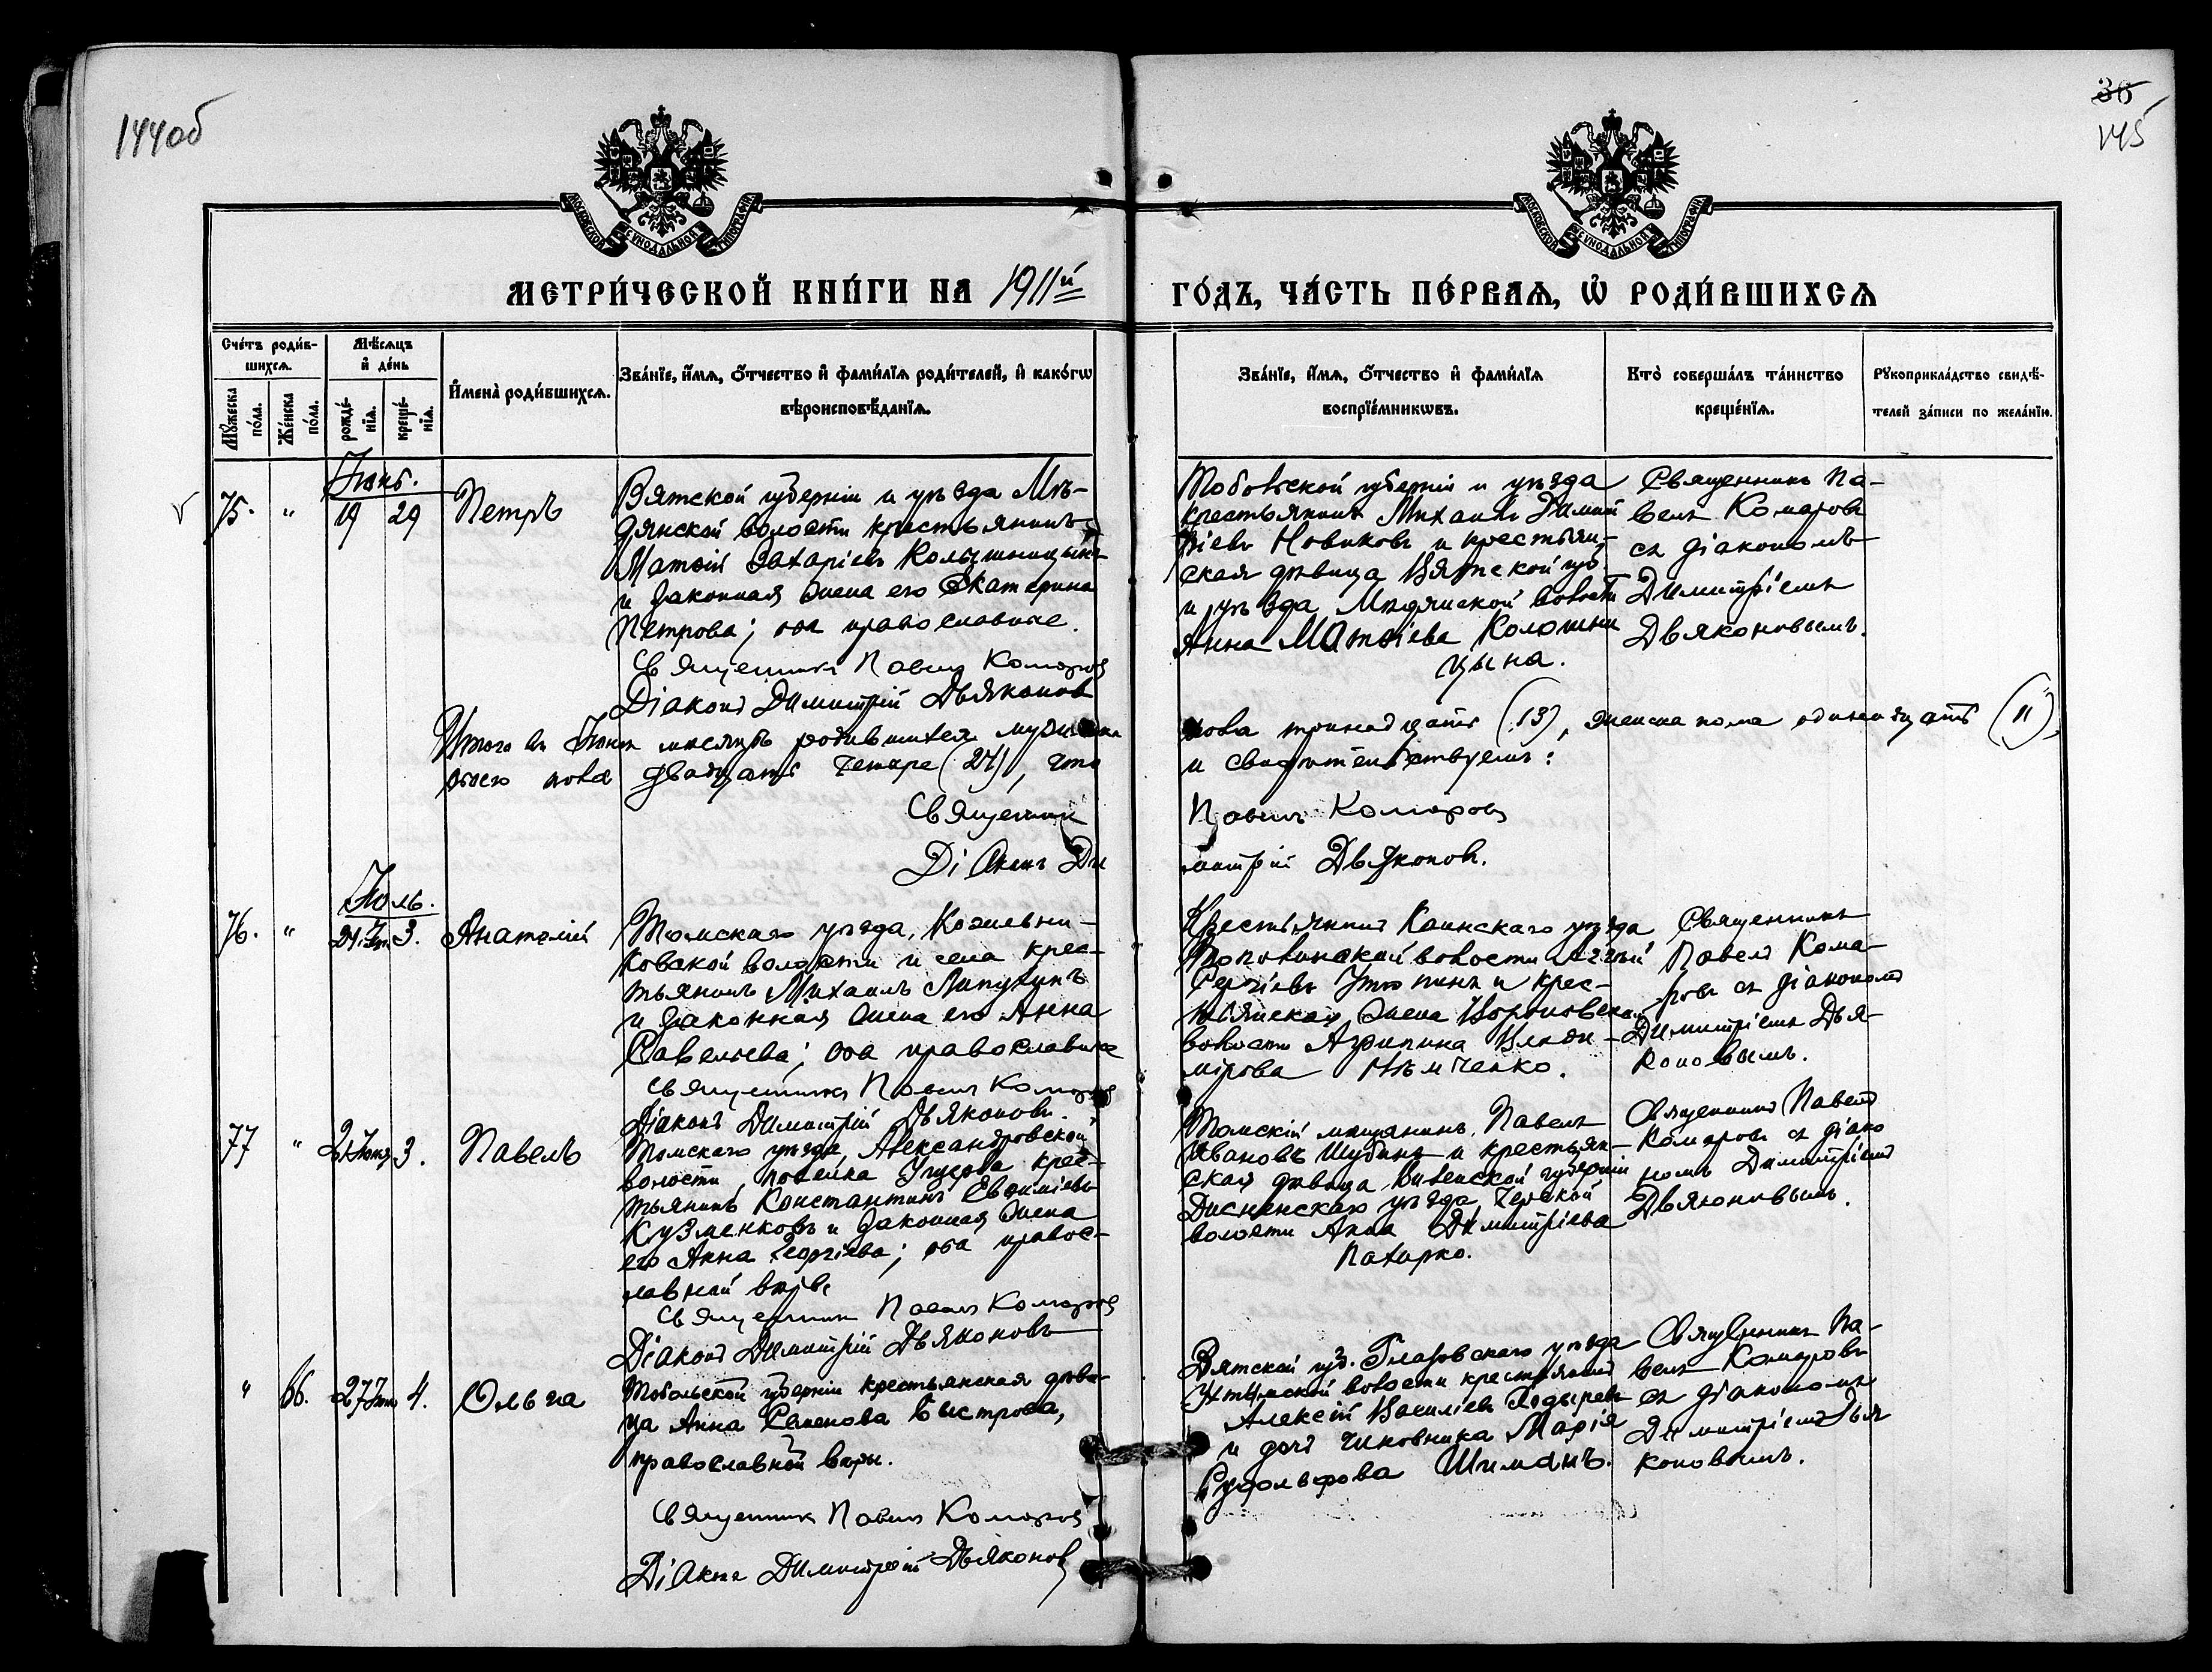 144об
36
145
МОСКОВСКОЙ СѴНОДАЛЬНОЙ ТИПОГРАФІИ
МОСКОВСКОЙ СѴНОДАЛЬНОЙ ТИПОГРАФІИ
МЕТРИ́ЧЕСКОЙ КНИ́ГИ НА 1911й ГО́ДЪ, ЧА́СТЬ ПЕ́РВАЯ, Ѡ҆ РОДИ́ВШИХСЯ
Сче́тъ роди́в-
шихся.
Мꙋ́жеска
по́ла.
Же́нска
по́ла.
Мѣ́сяцъ
и҆ де́нь
рожде́-
нїя.
креще́-
нїя.
И҆мена̀ роди́вшихся.
Зва́нїе, и҆́мя, о҆́тчество и҆ фами́лїя роди́телей, и҆ како́гѡ
вѣроисповѣ́данїя.
Зва́нїе, и҆́мя, о҆́тчество и҆ фами́лїя
воспрїе́мникѡвъ.
Кто̀ соверша́лъ та́инство
креще́нїя.
Рꙋкоприкла́дство свидѣ́-
телей за́писи по жела́нїю.
Іюнь.
75. " 19 29 Петръ
Вятской губерніи и уѣзда Мѣ-
дянской волости крестьянинъ
Матѳій Захаріевъ Колышницынъ
и законная жена его Екатерина
Петрова; оба православные.
Священникъ Павелъ Комаровъ
Діаконъ Димитрій Дьяконовъ
Тобольской губерніи и уѣзда
крестьянинъ Михаилъ Димит
ріевъ Новиковъ и крестьян-
ская дѣвица Вятской губ.
и уѣзда Мѣдянской волости
Анна Матѳіева Коломни
цына.
Священникъ Па-
велъ Комаровъ
съ діакономъ
Димитріемъ
Дьяконовымъ.
Итого въ Іюнѣ мѣсяцѣ родившихся мужеска пола тринадцать (13), женска пола одинадцать (11),
обоего пола двадцать четыре (24), что и свидѣтельствуемъ:
Священникъ Павелъ Комаровъ
Діаконъ Димитрій Дьяконовъ.
Іюль.
76. " 24 Іюн 3. Анатолій
Томскаго уѣзда, Кожевни-
ковской волости и села крес-
тьянинъ Михаилъ Лапухинъ
и законная жена его Анна
Савельева; оба православные
Священникъ Павелъ Комаровъ
Діаконъ Димитрій Дьяконовъ.
Крестьянинъ Каинскаго уѣзда
волости
Сергіевъ и крес-
тьянская жена Вороновской
волости Агрипина Влади-
мірова Нѣмченко.
Священникъ
Павелъ Кома-
ровъ съ діакономъ
Димитріемъ Дья-
коновымъ.
77 " 21 Іюня 3. Павелъ
Томскаго уѣзда, Александровской
волости, поселка крес-
тьянинъ Константинъ Евѳиміевъ
Кузменковъ и законная жена
его Анна Георгіева; оба правос-
лавной вѣры
Священникъ Павелъ Комаровъ
Діаконъ Димитрій Дьяконовъ
Томскій мѣщанинъ, Павелъ
Ивановъ Шубинъ и крестьян-
ская дѣвица Виленской губерніи
Дисненскаго уѣзда,
волости Анна Димитріева
Священникъ Павелъ
Комаровъ съ діако
номъ Димитріемъ
Дьяконовымъ.
" 66. 27 Іюн 4. Ольга
Тобольской губерніи крестьянская дѣви-
ца Анна Семенова Быстрова,
православной вѣры.
Священникъ Павелъ Комаровъ
Діаконъ Димитрій Дьяконовъ
Вятской губ. Глазовскаго уѣзда
волости крестьянинъ
Алексій Василіевъ
и дочь чиновника Марія
Рудольфова Шиманъ.
Священникъ Па-
велъ Комаровъ
съ діакономъ
Димитріемъ Дья
коновымъ.